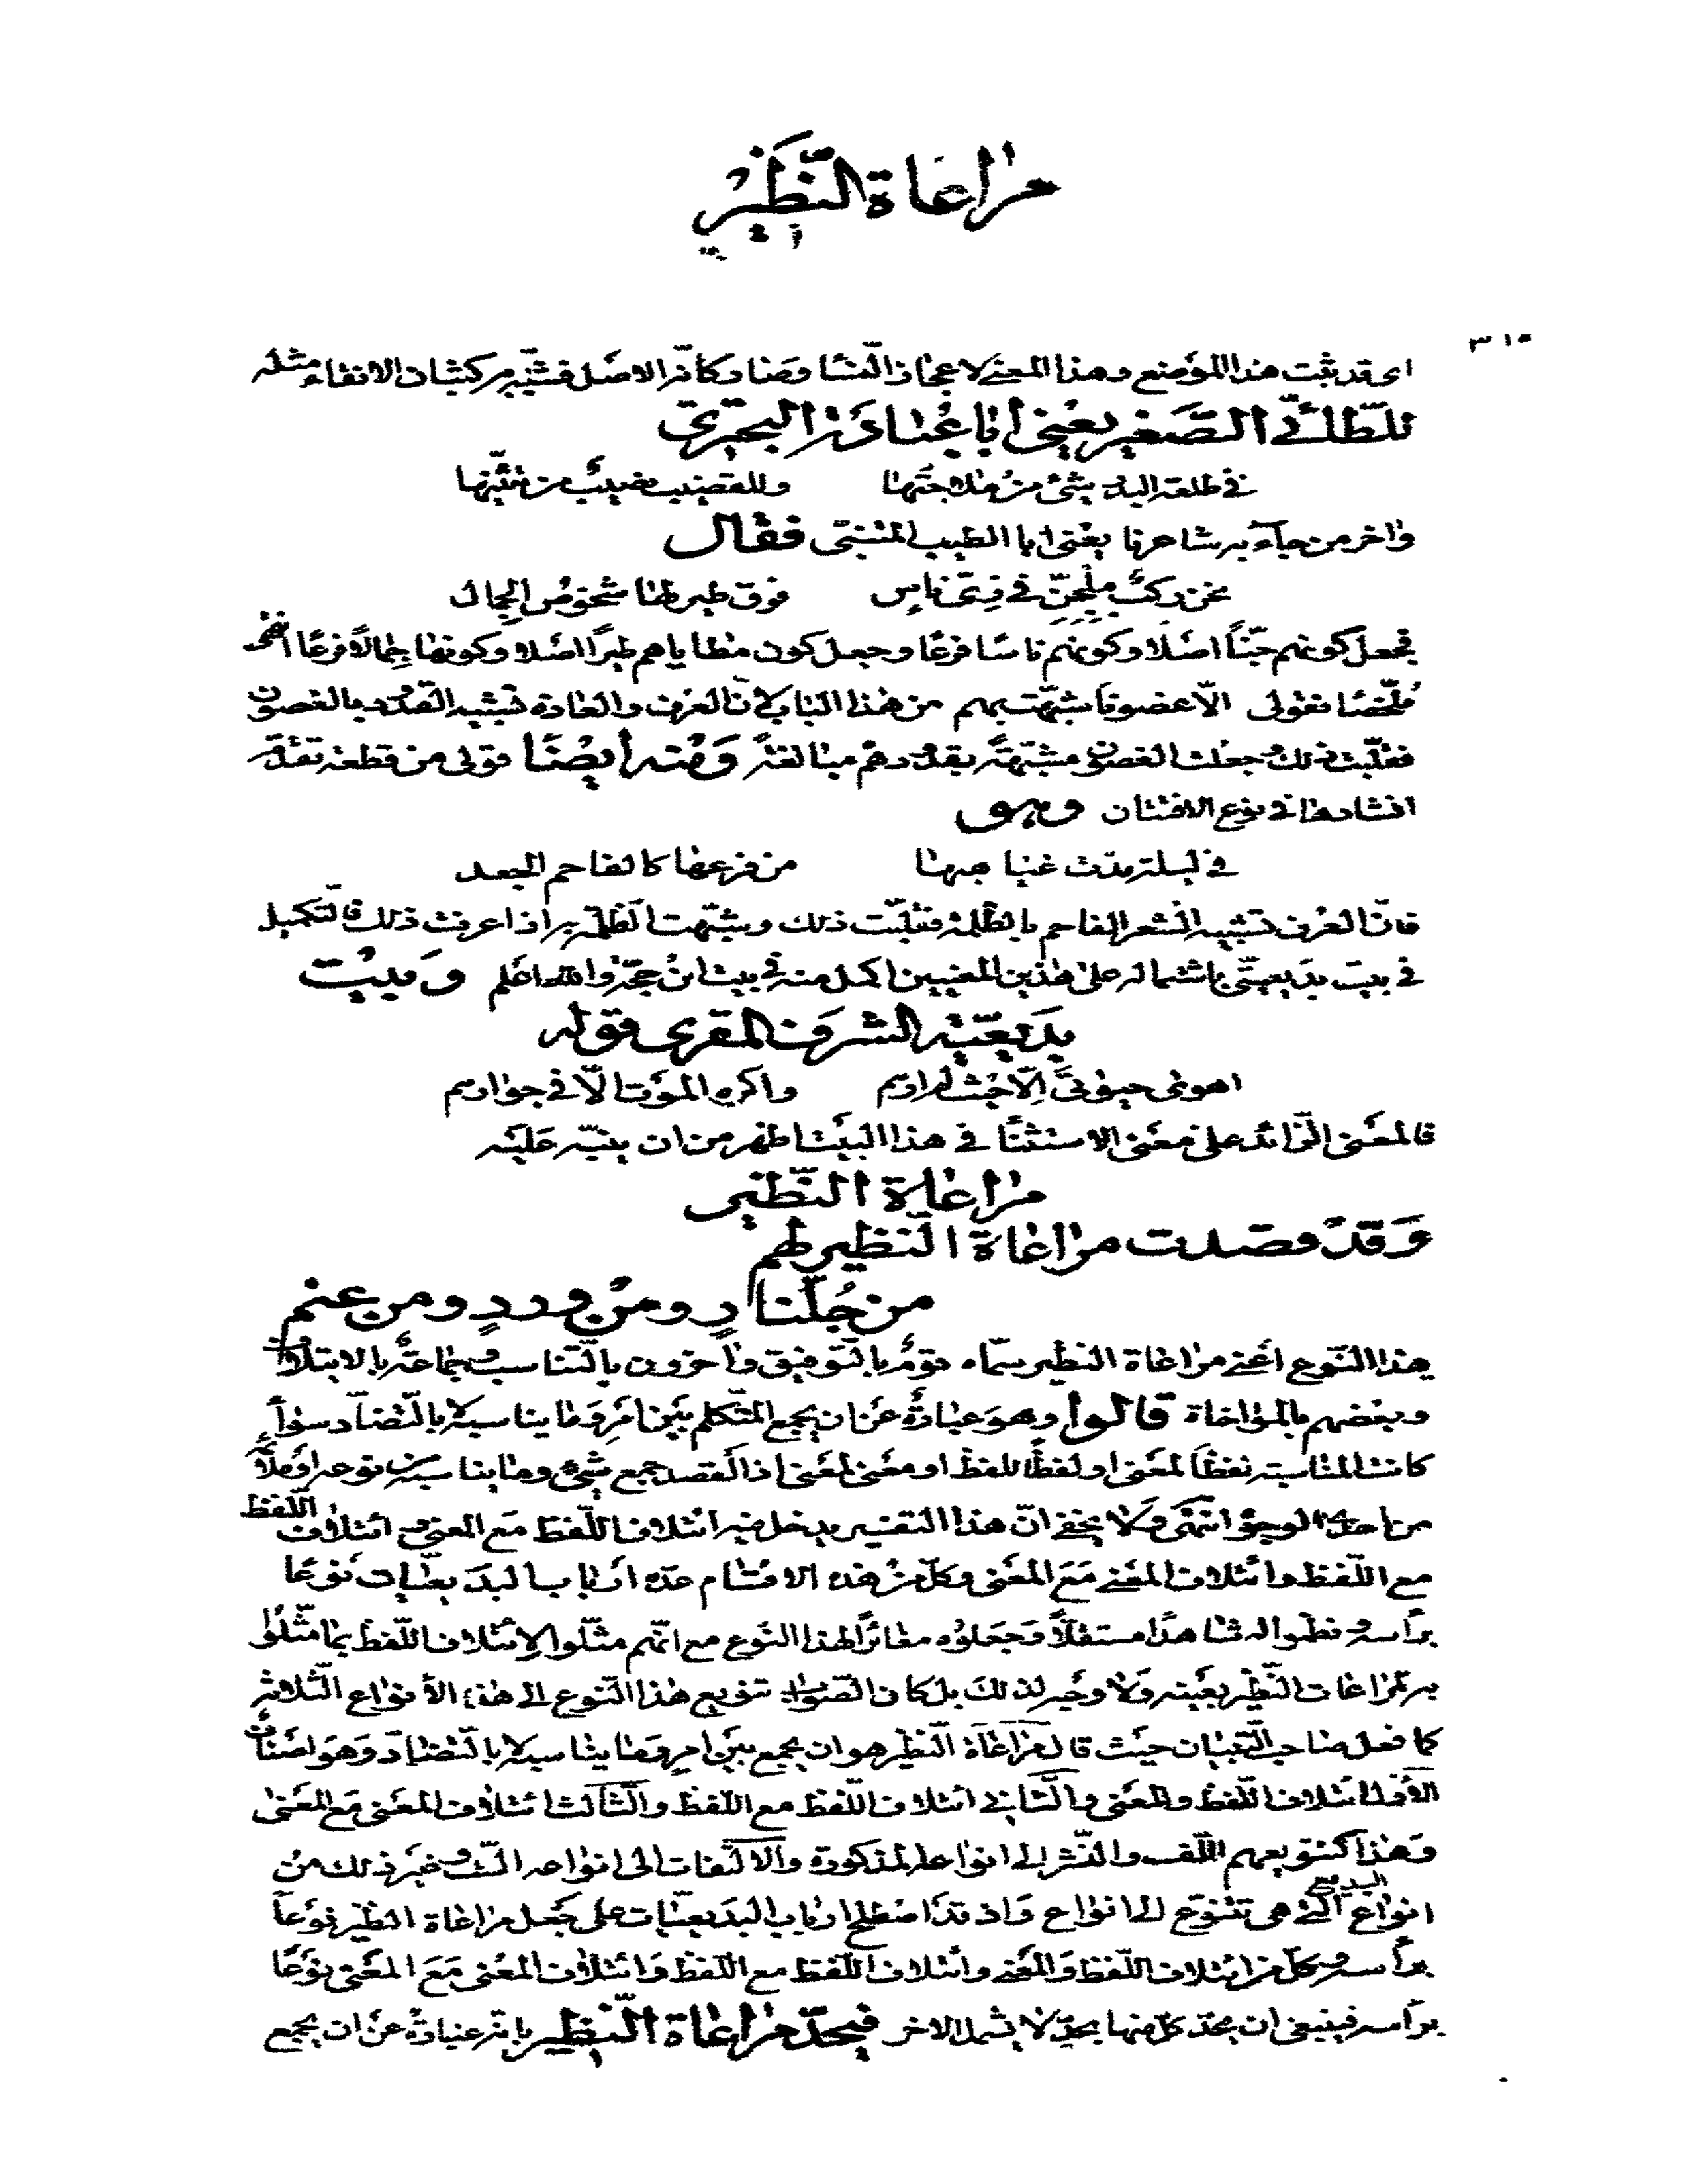 مراعاة النظير
٣١٥
اى قد ثبت هذا الموضع وهذا المعنى لاعجاز النسا وصفا وكانّه الاصل فشبّه به كثبان الانقاء مثله
للطّائىّ الصّغير يعنى ابا عبادة البحترى
فى طلعة البدر شئ من ملاحتها وللقضيب نصيب من تثنّيها
واخر من جاء به شاعرنا يعنى ابا الطيب المتنبّى فقال
نحن ركب ملجنّ فى زىّ ناس فوق طير لها شخوص الجمال
فجعل كونهم جنّاً اصلا وكونهم ناسا فرعًا وجعل كون مطاياهم طيرًا اصلا وكونها جمالًا فرعًا انتهى
ملخّصًا فقولى الّا عضوفا شبّهت بهم من هذا الباب لانّ العرف والعادة تشبيه القدود بالغصون
فقلبت ذلك وجعلت الغصون مشبّهة بقدودهم مبالغة ومنه ايضًا قولى من قطعة تقدّم
انشادها فى نوع الافتنان وهو
فى ليلة مدّت غياهبها من فرعها كالفاحم الجعد
فانّ العرف تشبيه الشعر الفاحم بالظلمة فقلّبت ذلك وشبّهت الظلمة به اذا عرفت ذلك فالتكميل
فى بيت بديعيتى باشتماله على هذين المعنيين اكمل منه فى بيت ابن حجّة والله اعلم وبيت
بديعيّة الشرف المقرى قوله
اهوى حيوتىّ الّا حيث لم ارهم واكره الموت الّا فى جوارهم
فالمعنى الزّائد على معنى الاستثنا فى هذا البيت اظهر من ان ينبّه عليه
مراعاة النّظير
وقد فصلت مراعاة النّظير لهم
من جلّنار ومن ورد ومن عنم
هذا النّوع اعنى مراعاة النظير سمّاه قوم بالتّوفيق واخرون بالتّناسب وجماعة بالايتلاف
وبعضهم بالمواخاة قالوا وهو عبارة عن ان يجمع المتكلم بين امر وما يناسبه لا بالتّضادّ سواء
كانت المناسبة لفظًا لمعنى او لفظًا للفظ او معنى لمعنى اذ القصد جمع شئ وما يناسبه من نوعه او ملائمه
من احد الوجوه انتهى ولا يخفى انّ هذا التفسير يدخل فيه ائتلاف اللّفظ مع المعنى وائتلاف اللّفظ
مع اللّفظ وائتلاف المعنى مع المعنى وكلّ من هذه الاقسام عدّه ارباب البديعيّات نوعًا
برأسه ونظموا له شاهدًا مستقلّاً وجعلوه مغائرًا لهذا النّوع مع انّهم مثّلوا لائتلاف اللّفظ بما مثّلوا
به لمراعات النّظير بعينه ولا وجه لذلك بل كان الصّواب تنويع هذا النّوع الى هذه الأنواع الثّلاثة
كما فعل صاحب التّبيان حيث قال مراعاة النّظير هو ان يجمع بين امر وما يناسبه لا بالتّضادّ وهو اصناف
الأوّل ائتلاف اللّفظ والمعنى والثّانى ائتلاف اللّفظ مع اللّفظ والثّالث ائتلاف المعنى مع المعنى
وهذا كتنويعهم اللّف والنّشر الى انواعه المذكورة والالتفات الى انواعه الستّ وغير ذلك من
انواع البديع الّتى هى تتنوّع الى انواع واذ قد اصطلح ارباب البديعيّات على جعل مراعاة النظير نوعاً
برأسه وكلّ من ائتلاف اللّفظ والمعنى وائتلاف اللّفظ مع اللّفظ وائتلاف المعنى مع المعنى نوعًا
برأسه فينبغى ان يحدّ كلّ منها بحدّ لا يشمل الاخر فيحدّ مراعاة النّظير بانّه عبارة عن ان يجمع